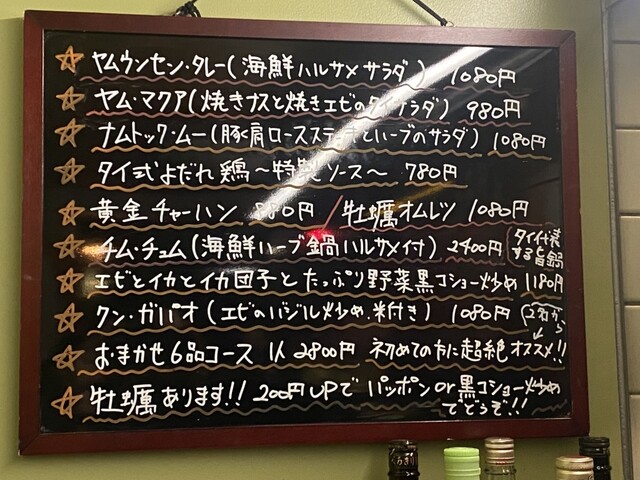 ☆ ヤムウンセン・タレー(海鮮ハルサメサラダ) 1080円
☆ ヤム・マクア(焼きナスと焼きエビのタイサラダ) 980円
☆ ナムトック・ムー(豚肩ロースステーキとハーブのサラダ) 1080円
☆ タイ式よだれ鶏〜特製ソース〜 780円
☆ 黄金チャーハン 880円 / 牡蠣オムレツ 1080円
☆ チム・チュム(海鮮ハーブ鍋ハルサメ付) 2400円
する旨鍋
☆ エビとイカとイカ団子とたっぷり野菜黒コショー炒め 1180円
☆ クン・ガパオ(エビのバジル炒め.米付き) 1080円
(2名から
☆ おまかせ6品コース 1人2800円 初めての方に超絶オススメ!!
☆ 牡蠣あります!! 200円UPで パッポン or 黒コショー炒め
でどうぞ!!